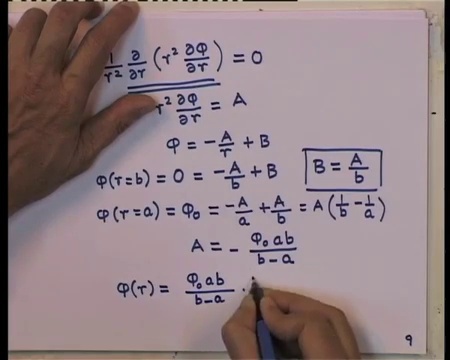 1/r² ∂/∂r (r² ∂φ/∂r) = 0
r² ∂φ/∂r = A
φ = -A/r + B
φ(r=b) = 0 = -A/b + B    B = A/b
φ(r=a) = φ₀ = -A/a + A/b = A(1/b - 1/a)
A = - φ₀ab/b-a
φ(r) = φ₀ab/b-a ·
9